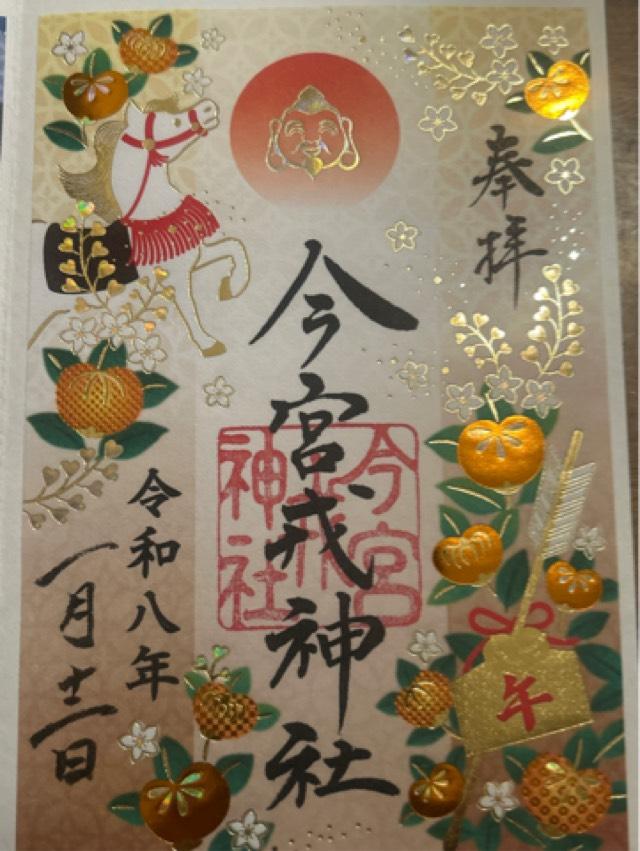 奉拝
今宮戎神社
今宮
戎
神社
令和八年
一月十二日
午